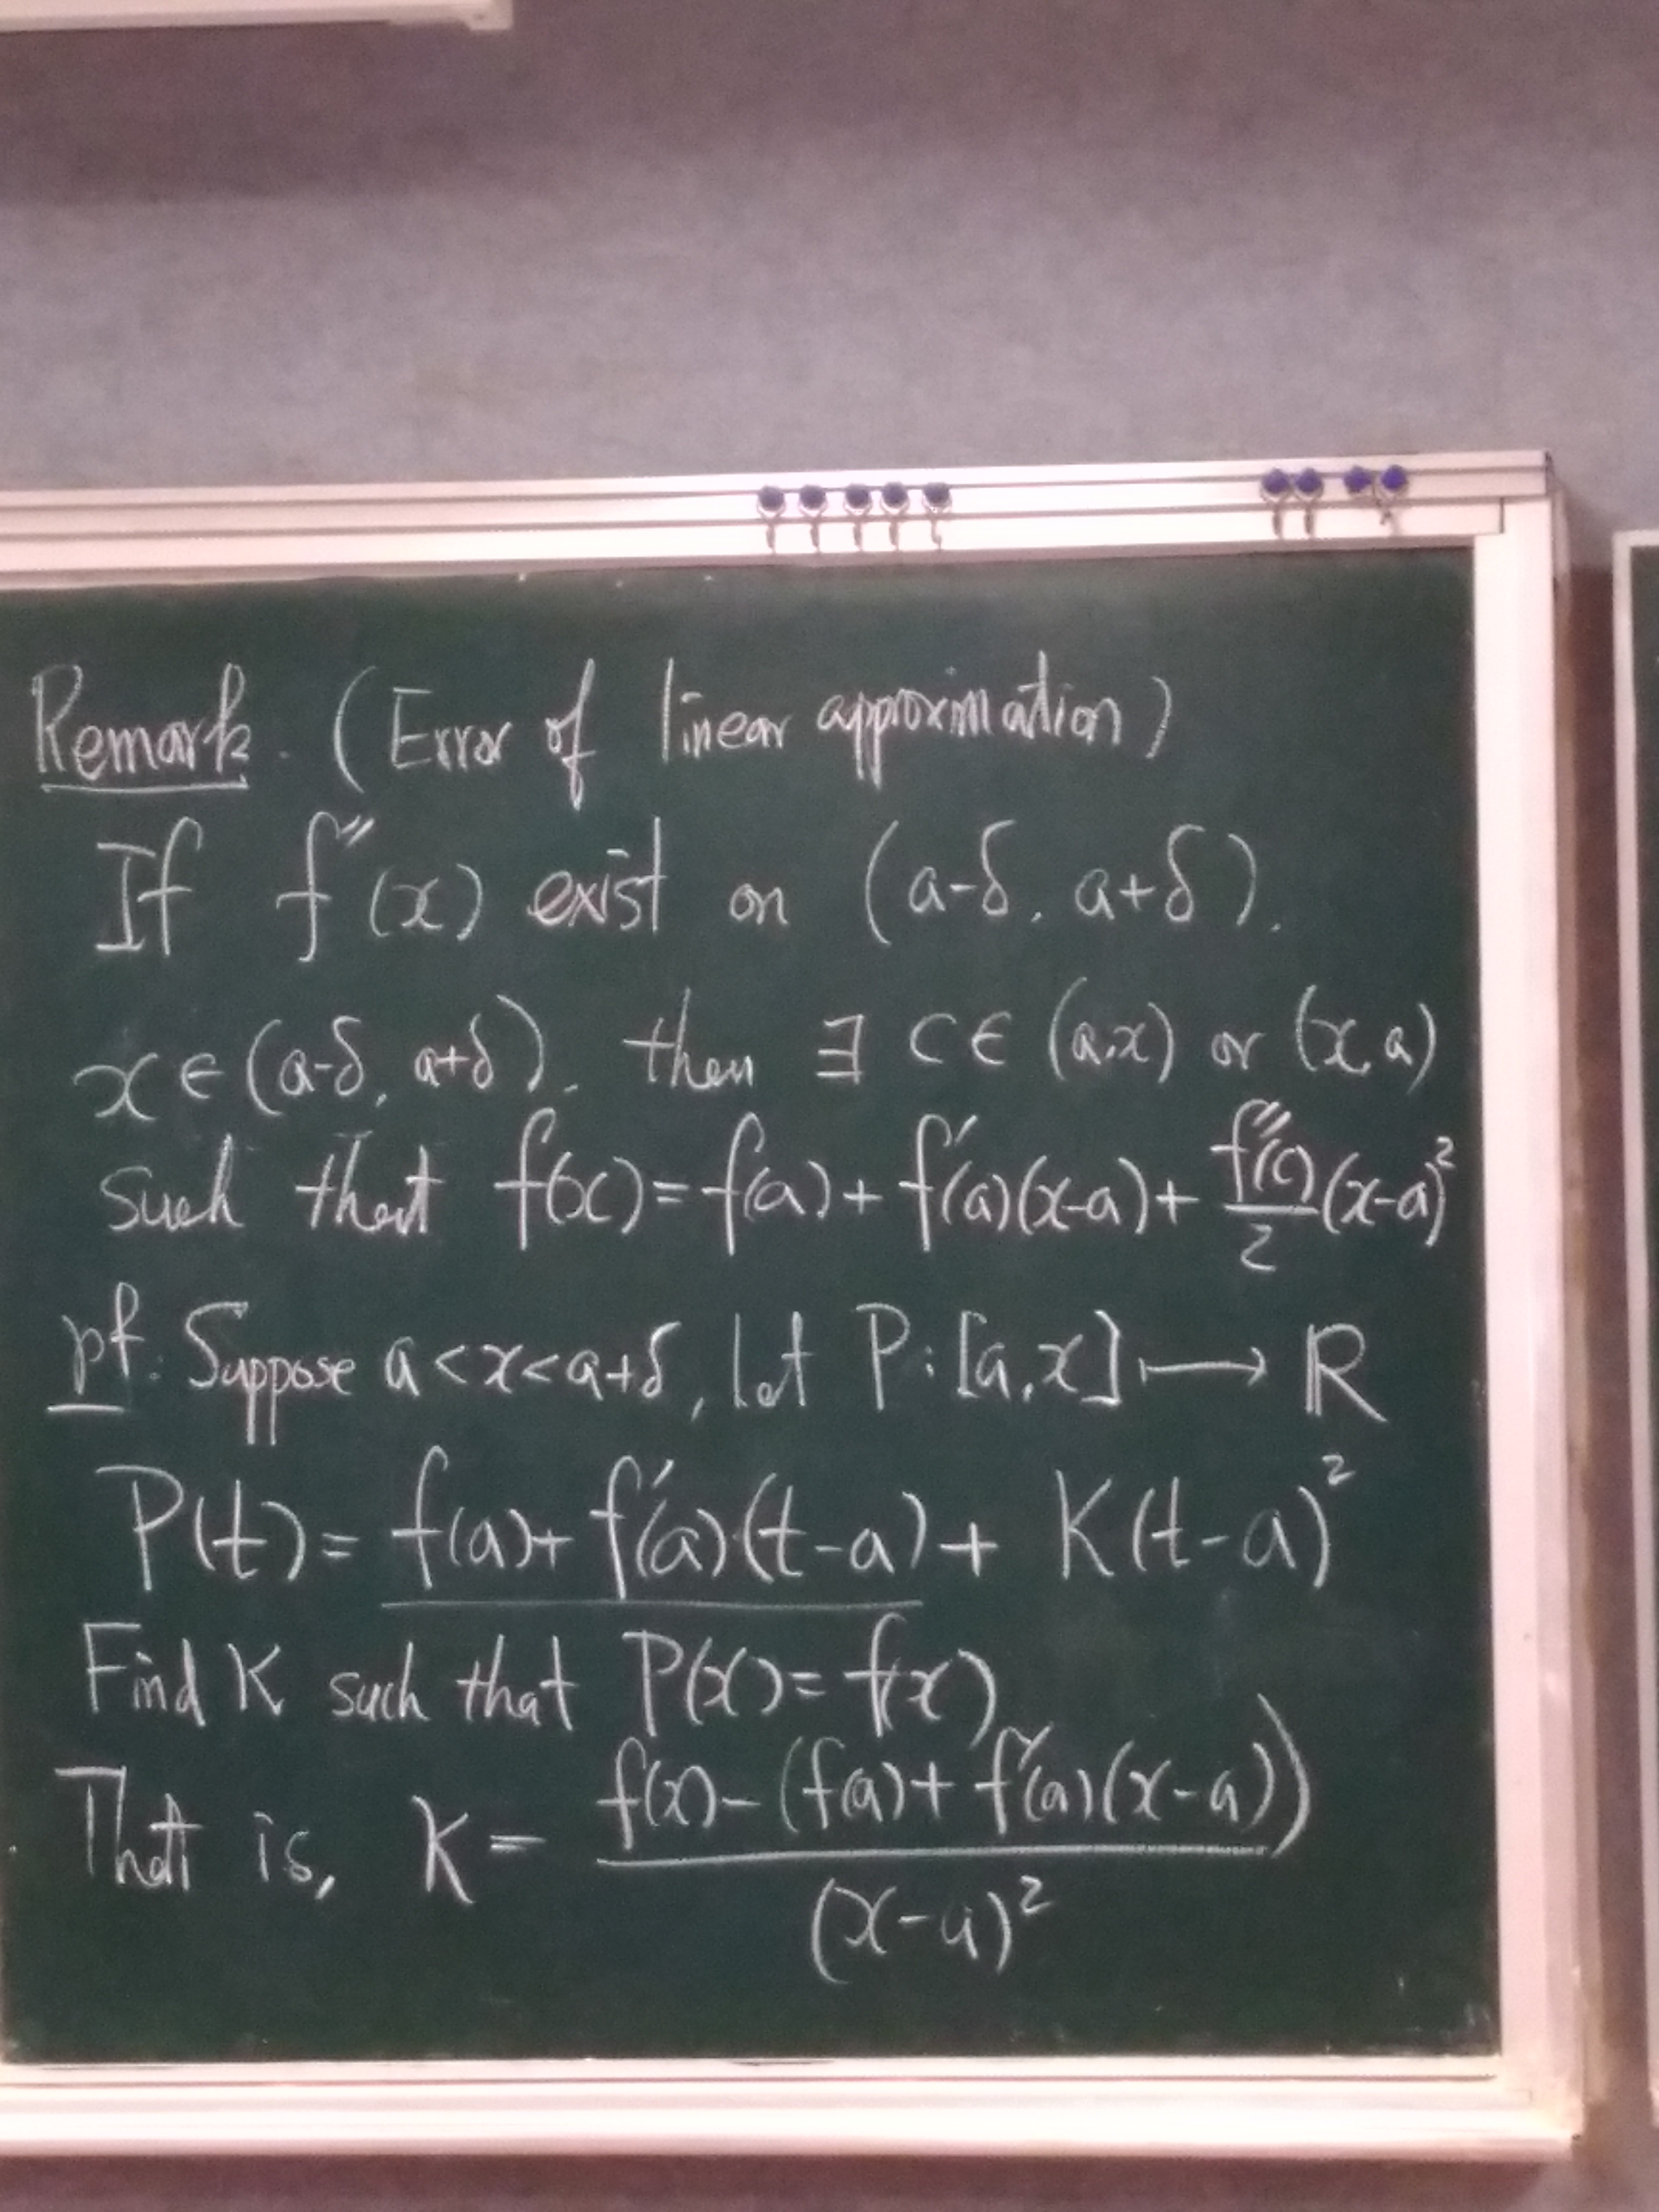 Remark. (Error of linear approximation)
If f″(x) exist on (a-δ, a+δ).
x∈(a-δ, a+δ), then ∃ c∈ (a,x) or (x,a)
such that f(x)=f(a)+f′(a)(x-a)+ f″(c)/2 (x-a)²
pf: Suppose a<x<a+δ, let P:[a,x]⟼ℝ
P(t)=f(a)+f′(a)(t-a)+K(t-a)²
Find K such that P(x)=f(x)
That is, K= f(x)-(f(a)+f′(a)(x-a))/(x-a)²